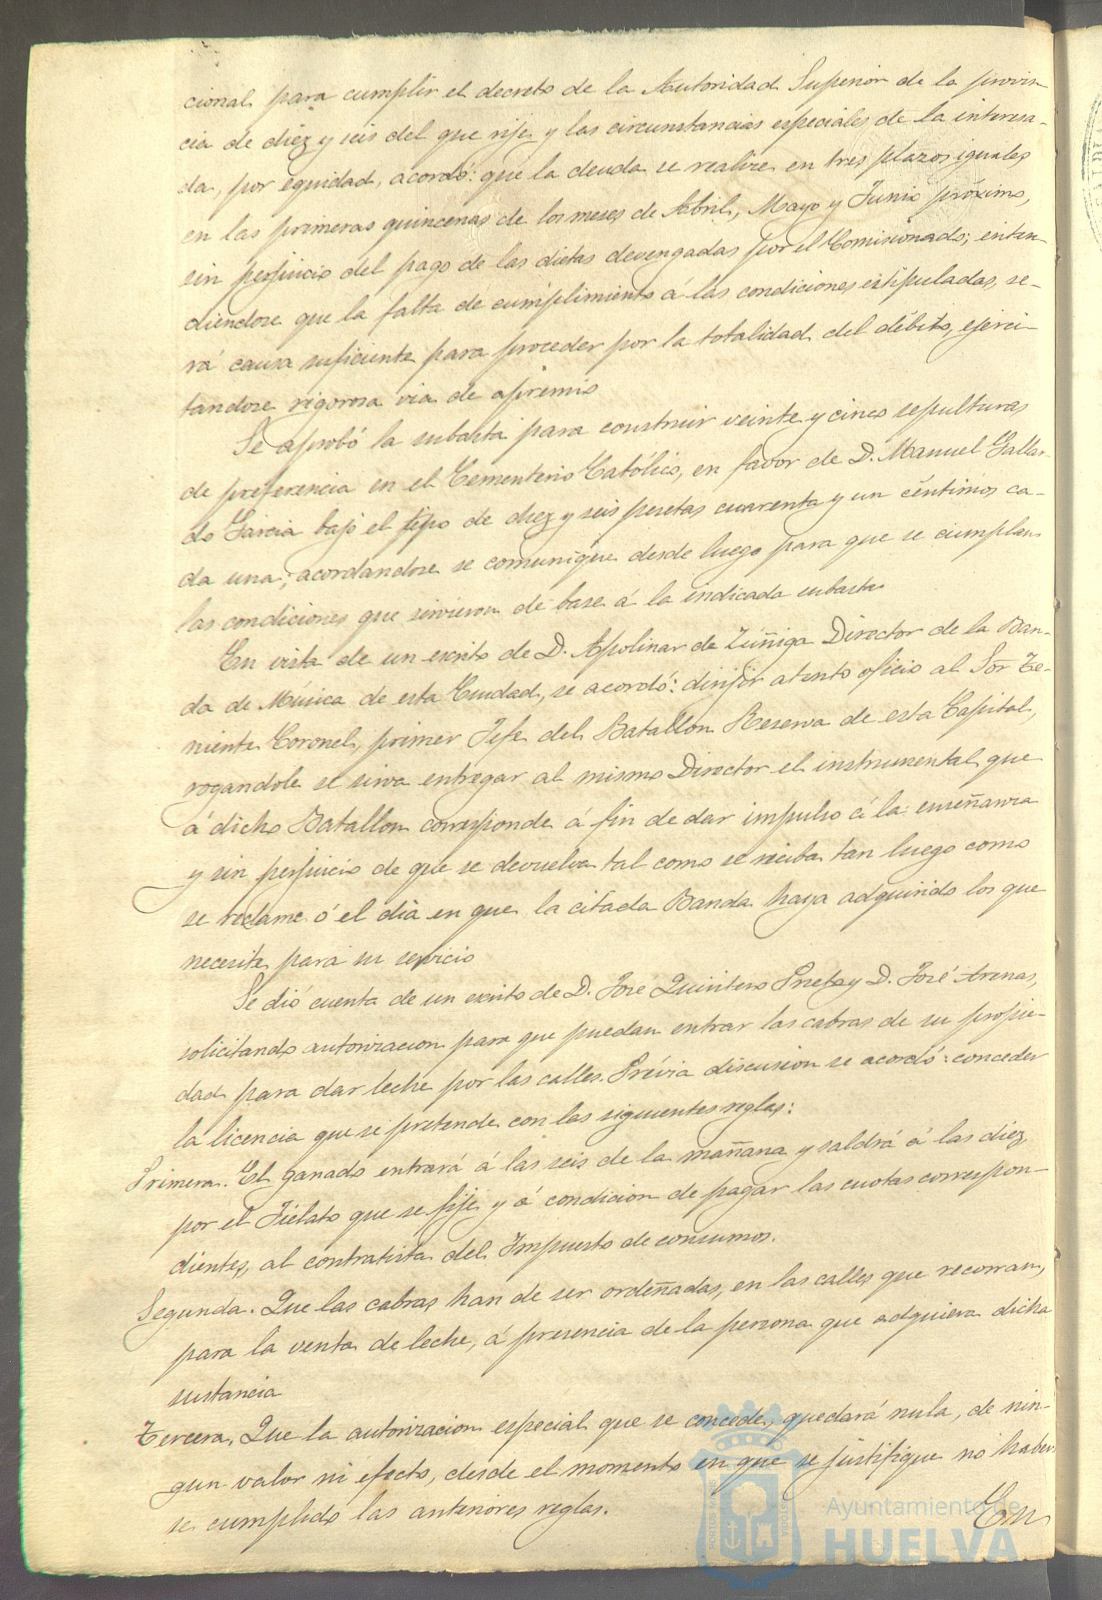 cional para cumplir el decreto de la Autoridad Superior de la provin
cia de diez y seis del que rije y las circunstancias especiales de la interesa-
da, por equidad, acordó: que la deuda se realize en tres plazos iguales
en las primeras quincenas de los meses de Abril, Mayo y Junio próximo,
sin perjuicio del pago de las dietas devengadas por el Comisionado; enten
diendose que la falta de cumplimiento á las condiciones estipuladas, se-
rá causa suficiente para proceder por la totalidad del débito, ejerci-
tandose rigorosa via de apremio
Se aprobó la subasta para construir veinte y cinco sepulturas
de preferencia en el Cementerio Católico, en favor de D. Manuel Gallar-
do Garcia bajo el tipo de diez y seis pesetas cuarenta y un céntimos ca-
da una; acordandose se comunique desde luego para que se cumplan
las condiciones que sirvieron de base á la indicada subasta
En vista de un escrito de D. Apolinar de Zúñiga Director de la Ban-
da de Música de esta Ciudad, se acordó: dirijir atento oficio al Sor Te-
niente Coronel, primer Jefe del Batallon Reserva de esta Capital,
rogandole se sirva entregar al mismo Director el instrumental que
á dicho Batallon corresponde á fin de dar impulso á la enseñanza
y sin perjuicio de que se devuelva tal como se reciba tan luego como
se reclame ó el dia en que la citada Banda haya adquirido los que
necesite para su servicio
Se dió cuenta de un escrito de D. José Quintero Prieto y D. José Arenas,
solicitando autorizacion para que puedan entrar las cabras de su propie-
dad para dar leche por las calles. Prévia discusion se acordó: conceder
la licencia que se pretende con las siguientes reglas:
Primera. El ganado entrará á las seis de la mañana y saldrá á las diez
por el Fielato que se fije y á condicion de pagar las cuotas correspon-
dientes, al contratista del Impuesto de consumos.
Segunda. Que las cabras han de ser ordeñadas, en las calles que recorran,
para la venta de leche, á presencia de la persona que adquiera dicha
sustancia
Tercera. Que la autorizacion especial que se concede, quedará nula, de nin-
gun valor ni efecto, desde el momento en que se justifique no haber
se cumplido las anteriores reglas.
En
Ayuntamiento de
HUELVA